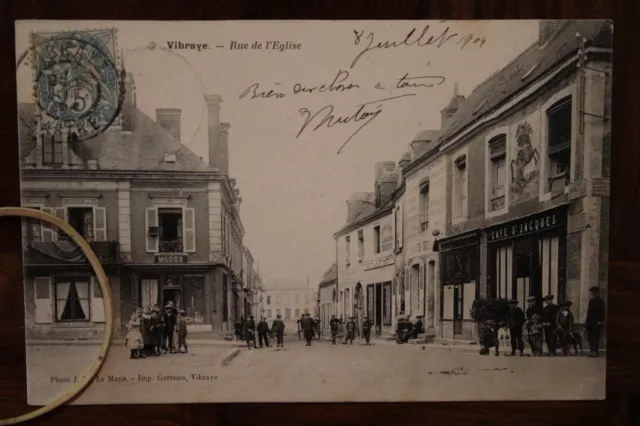 Vibraye. - Rue de l'Eglise
8 Juillet 1904
Bien des choses à tous
MODES
CAFÉ St JACQUES
5
Photo J. Le Mans. - Imp. Garreau, Vibraye